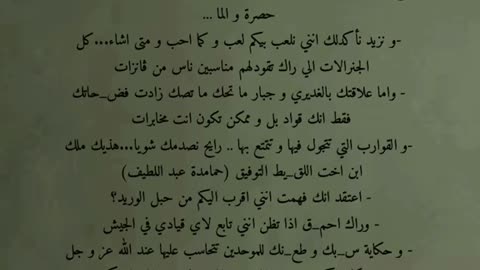 حصرة و الما ...
-و نزيد نأكدلك انني نلعب بيكم لعب و كما احب و متى اشاء...كل
الجنرالات الي راك تقودلهم مناسبين ناس من ڤانزات
- واما علاقتك بالغديري و جبار ما تحك ما تصك زادت فض_حاتك
فقط انك قواد بل و ممكن تكون انت مخابرات
-و القوارب التي تتجول فيها و تتمتع بها .. رايح نصدمك شويا...هذيك ملك
ابن اخت اللق_يط التوفيق (حمامدة عبد اللطيف)
- اعتقد انك فهمت انني اقرب اليكم من حبل الوريد؟
- وراك احم_ق اذا تظن انني تابع لاي قيادي في الجيش
- و حكاية س_بك و طع_نك للموحدين تتحاسب عليها عند الله عز و جل